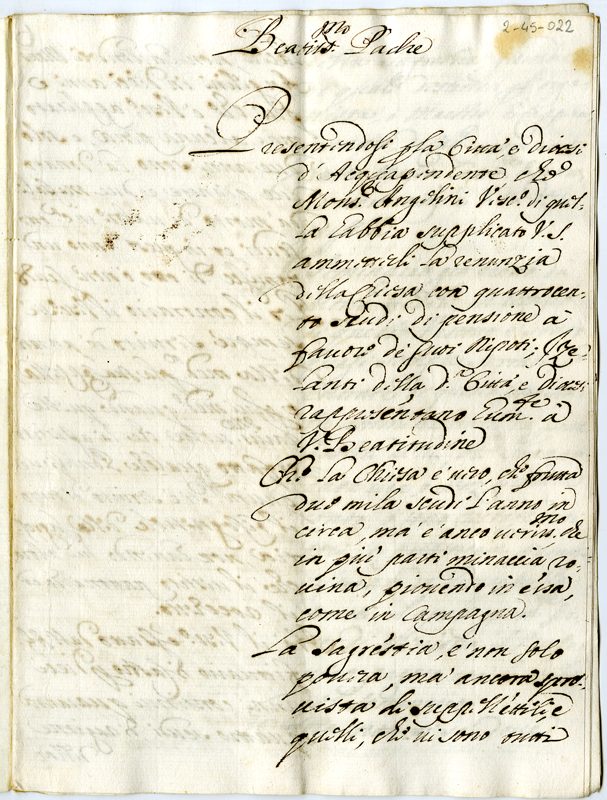 2-45-022
Beatiss.mo Padre
Presentendosi p la Città, e Diocesi
d'Acquapendente che
Mons.r Angelini Vesc.o di quel-
la habbia supplicato V. S.
ammetterli la renunzia
della Chiesa con quattrocen-
to scudi di pensione à
favore de suoi Nipoti; Ze-
lanti della d.a Città, e Diocesi
rappresentano hum.te à
V. Beatitudine
Che La Chiesa è vero, che frutta
due mila scudi l'anno in
circa, ma è anco veriss.mo che
in più parti minaccia ro-
vina, piovendo in essa,
come in Campagna.
La Sagrestia, è non solo
povera, ma ancora spro-
vista di suppellettili, e
quelli, che vi sono tutti